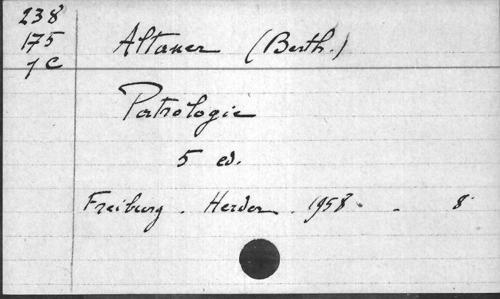 238
175
1 C
Altaner (Berth.)
Patrologie
5 ed.
Freiburg . Herder . 1958 . - 8°